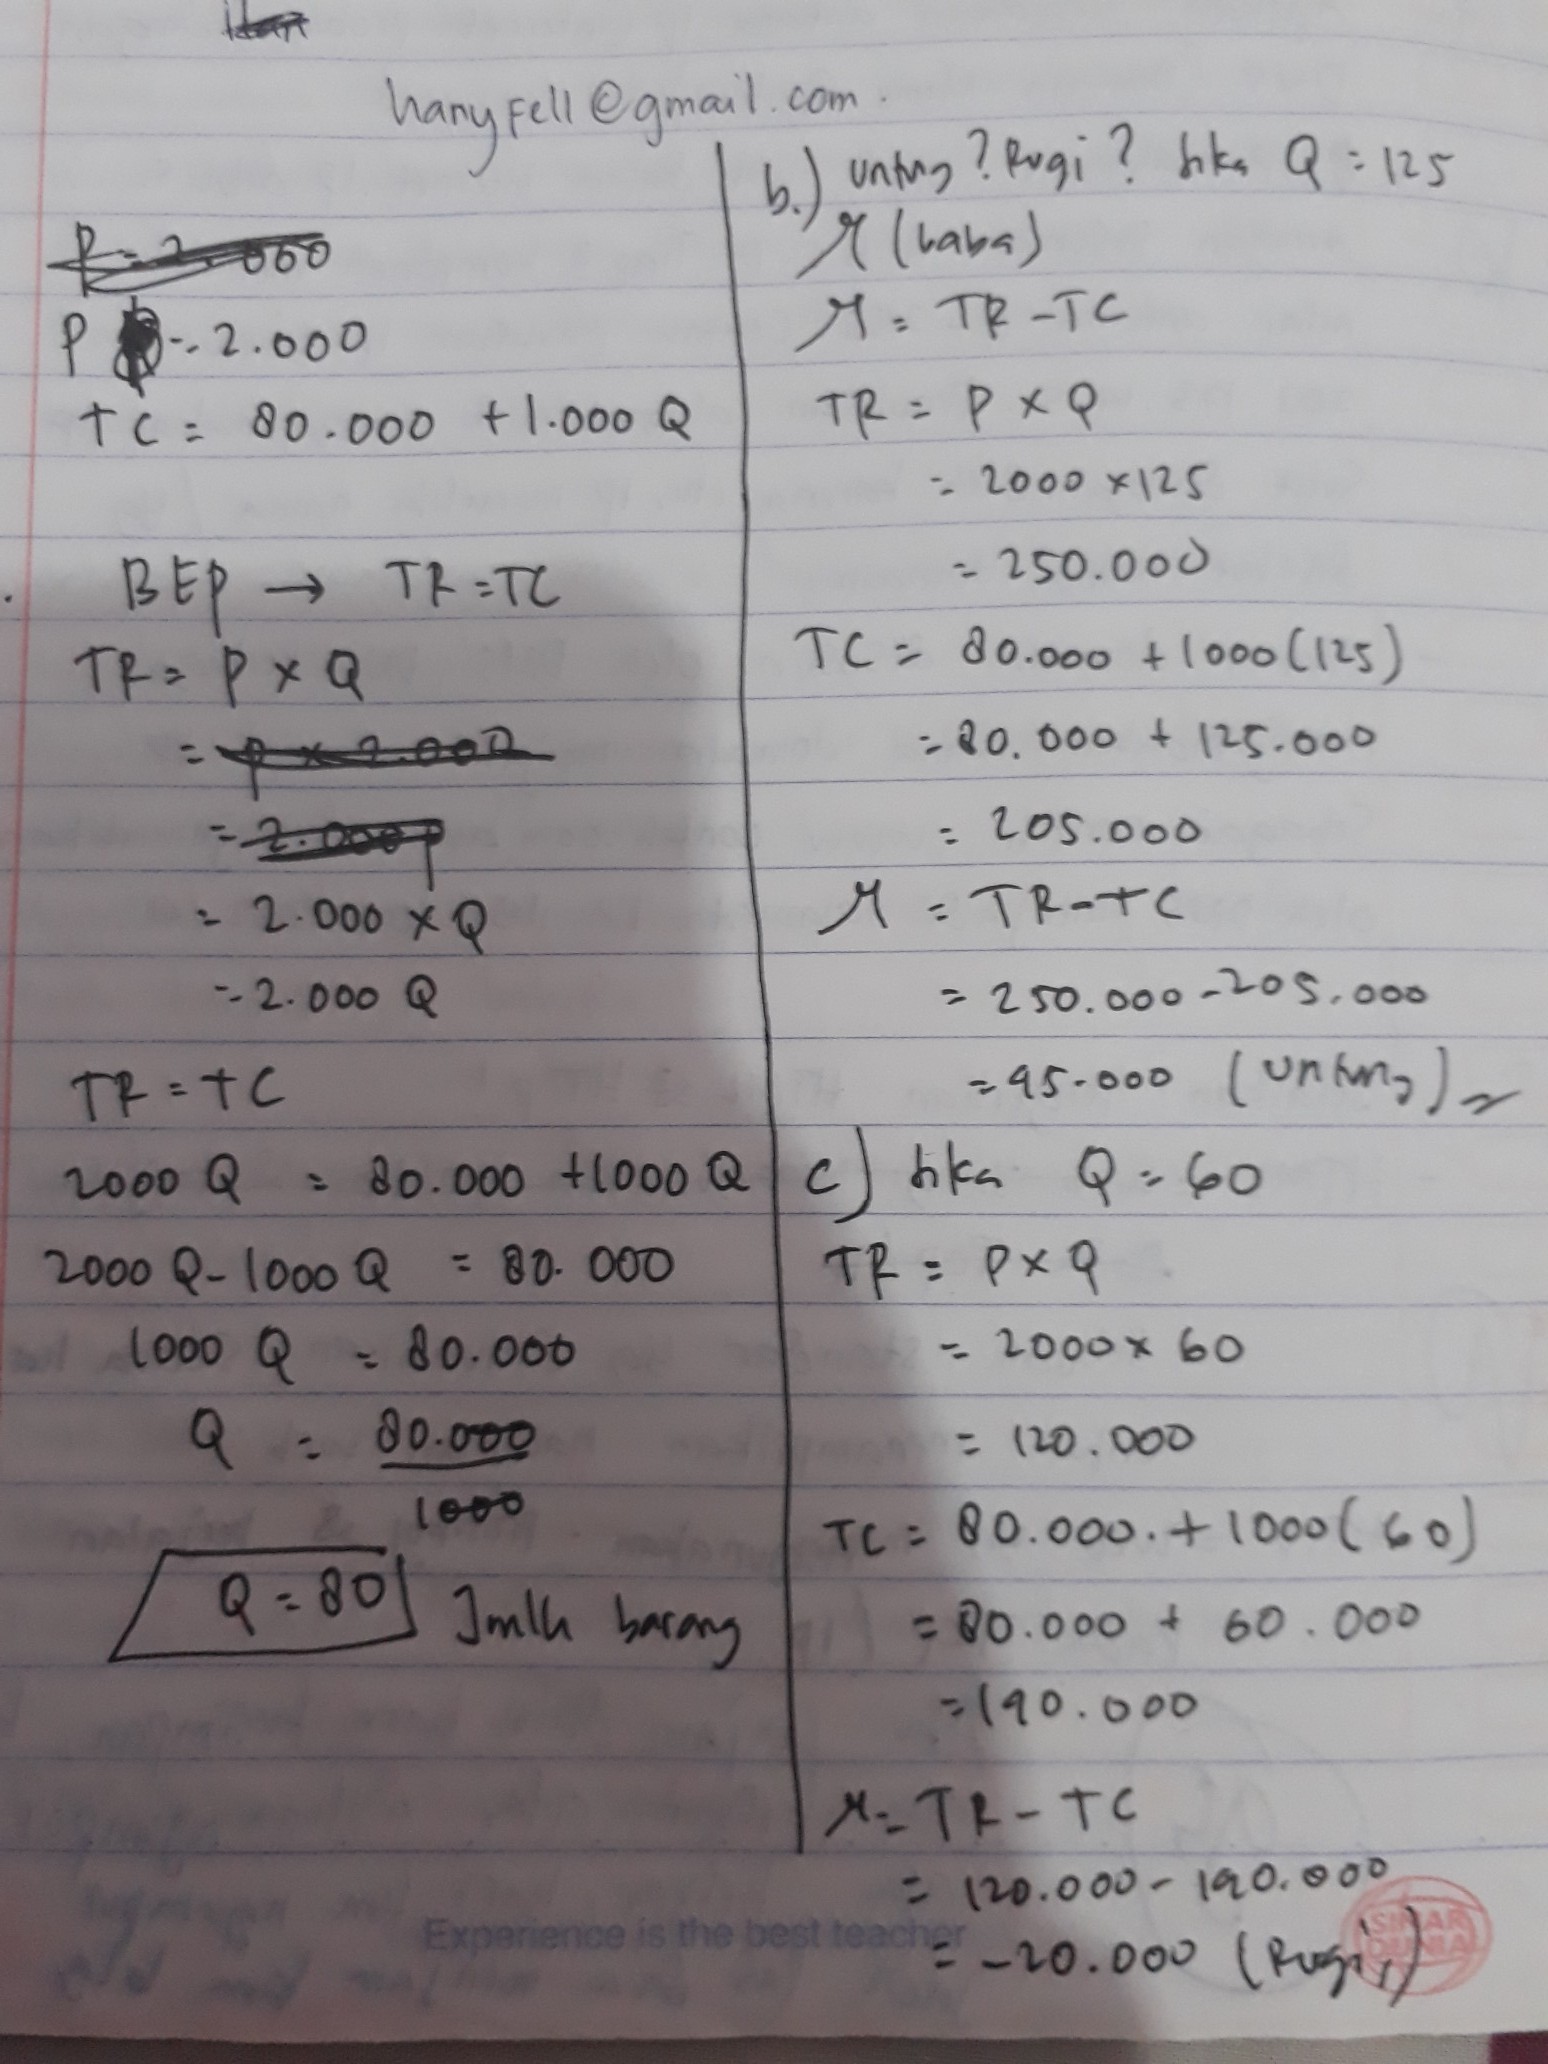 hanyfell@gmail.com.
P = 2.000
TC = 80.000 + 1.000 Q
BEP → TR = TC
TR = P x Q
= 2.000 x Q
= 2.000 Q
TR = TC
2000 Q = 80.000 + 1000 Q
2000 Q - 1000 Q = 80.000
1000 Q = 80.000
Q = 80.000
1000
Q = 80 Jmlh barang
b.) Untung? Rugi? Jika Q = 125
π (laba)
π = TR - TC
TR = P x Q
= 2000 x 125
= 250.000
TC = 80.000 + 1000 (125)
= 80.000 + 125.000
= 205.000
π = TR - TC
= 250.000 - 205.000
= 45.000 (Untung)
c) Jika Q = 60
TR = P x Q
= 2000 x 60
= 120.000
TC = 80.000. + 1000 (60)
= 80.000 + 60.000
= 140.000
π = TR - TC
= 120.000 - 140.000
= -20.000 (Rugi)
Experience is the best teacher
SINAR DUNIA